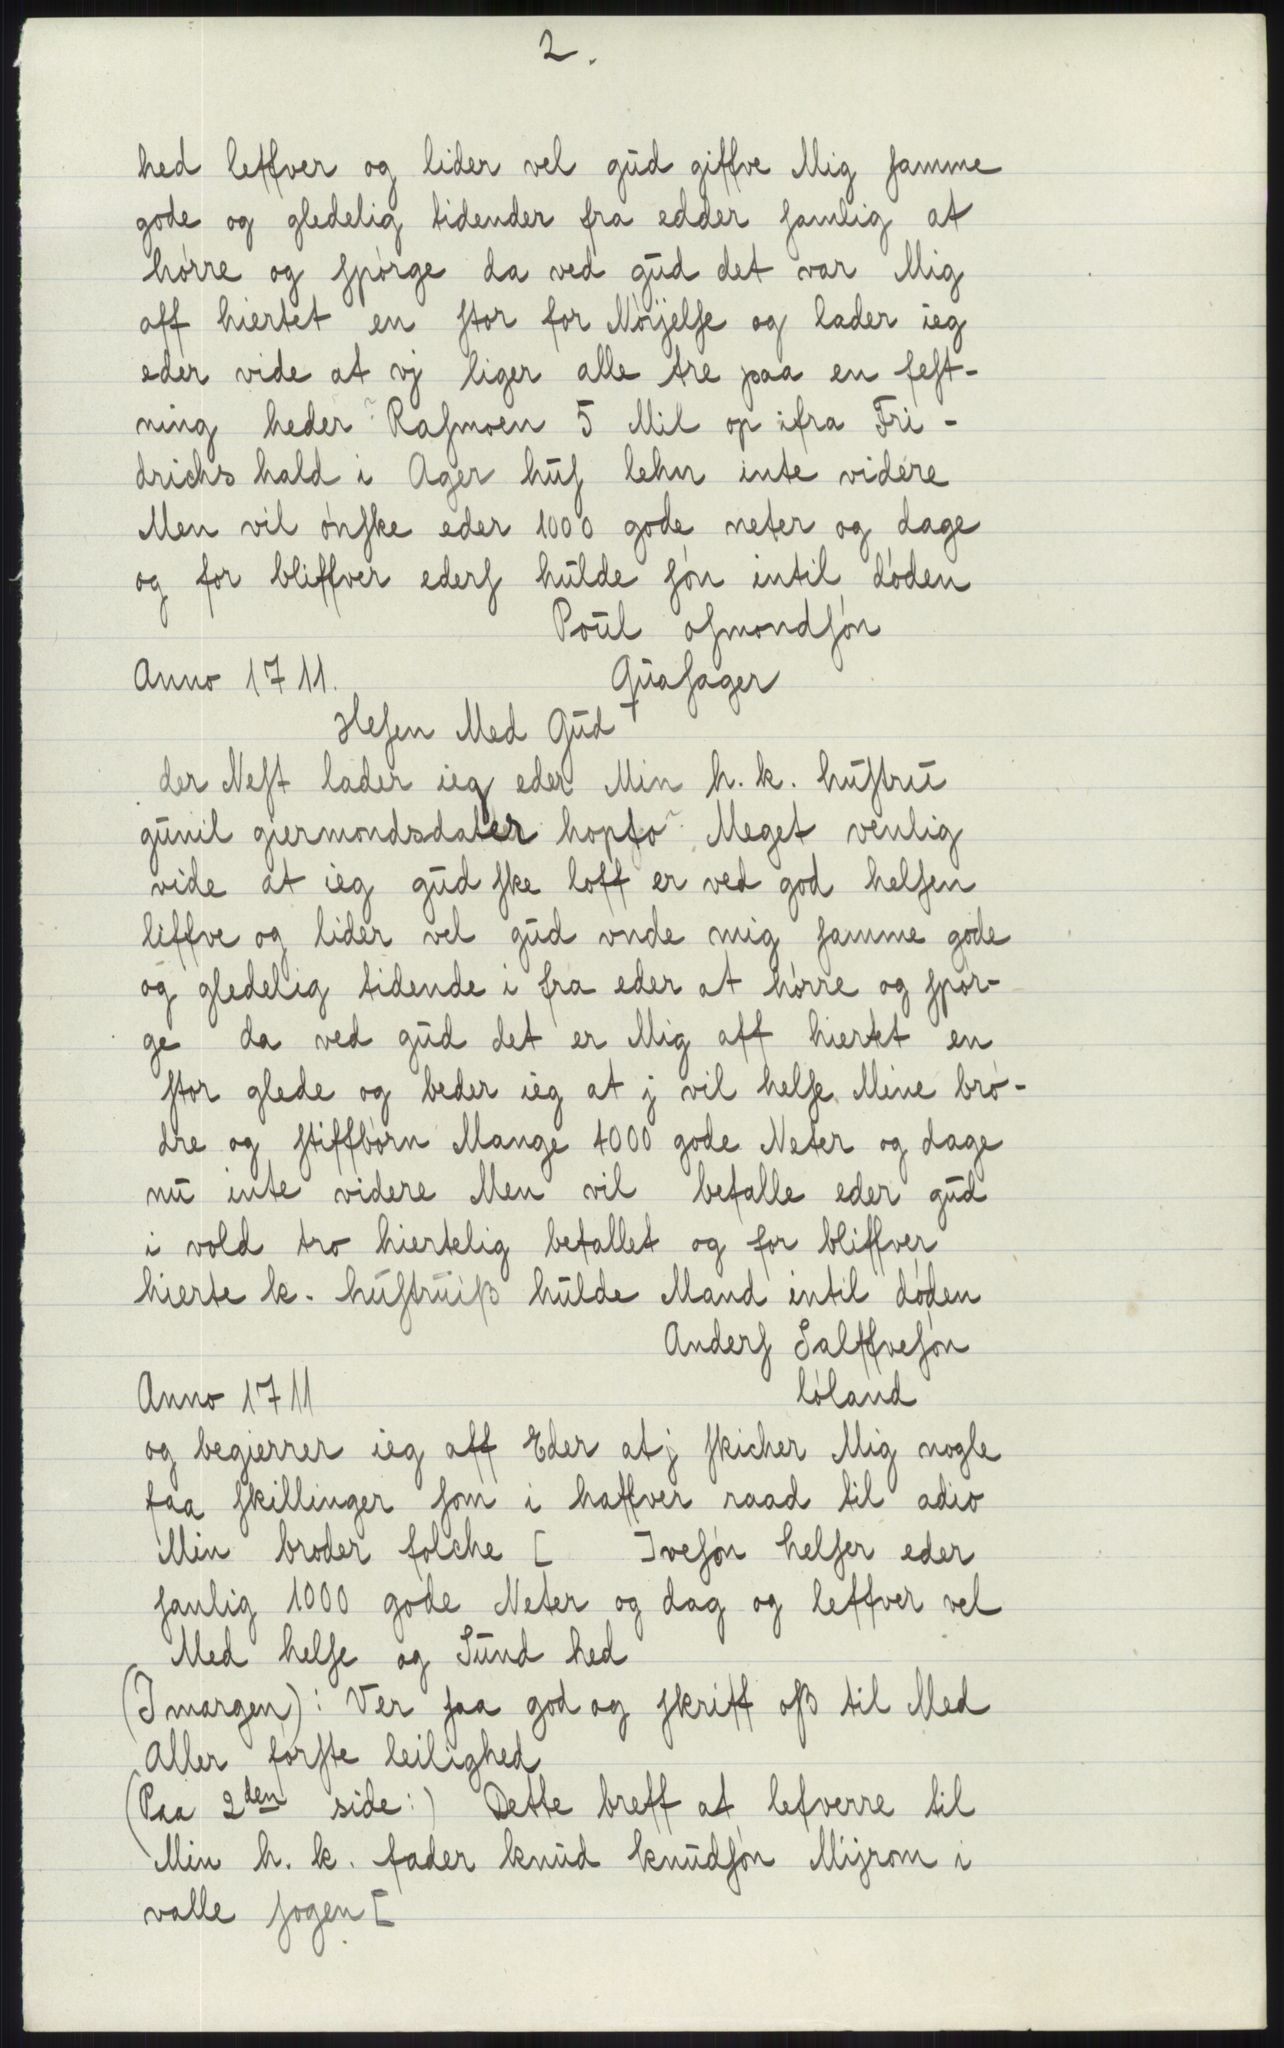 2.
hed leffver og lider vel gud giffve Mig samme
gode og gledelig tidender fra edder samlig at
hørre og spørge da ved gud det var Mig
aff hiertet en stor for Nøijelse og lader ieg
eder vide at vj liger alle tre paa en fest-
ning heder Rasmoen 5 Mil op ifra Fri-
drichs hald i Ager hus lehn inte videre
Men vil ønske eder 1000 gode neter og dage
og for bliffver eders hulde søn intil døden
Poul osmondsøn
Anno 1711. Quasager
Hesen Med Gud
der Nest lader ieg eder Min h. k. hustru
gunil giermondsdater hopto Meget venlig
vide at ieg gud ske loff er ved god helsen
liffve og lider vel gud vnde mig samme gode
og gledelig tidende i fra eder at hørre og spør-
ge da ved gud det er Mig aff hiertet en
stor glede og beder ieg at j vil helse Mine brø-
dre og stiffbørn Mange 1000 gode Neter og dage
nu inte videre Men vil befalle eder gud
i vold tro hiertelig befallet og for bliffver
hierte k. hustruiß hulde Mand intil døden
Anders Salffvesøn
Anno 1711 løland
og begierrer ieg aff Eder at j skicher Mig nogle
faa skillinger som i haffver raad til adio
Min broder folche [ ]vesøn helser eder
sanlig 1000 gode Neter og dag og leffver vel
Med helse og Sund hed
(I margen): Ver saa god og skriff oß til Med
Aller første leilighed
(Paa 2den side:) Dette breff at lefverre til
Min h. k. fader knud knudsøn Mijrom i
valle sogen [